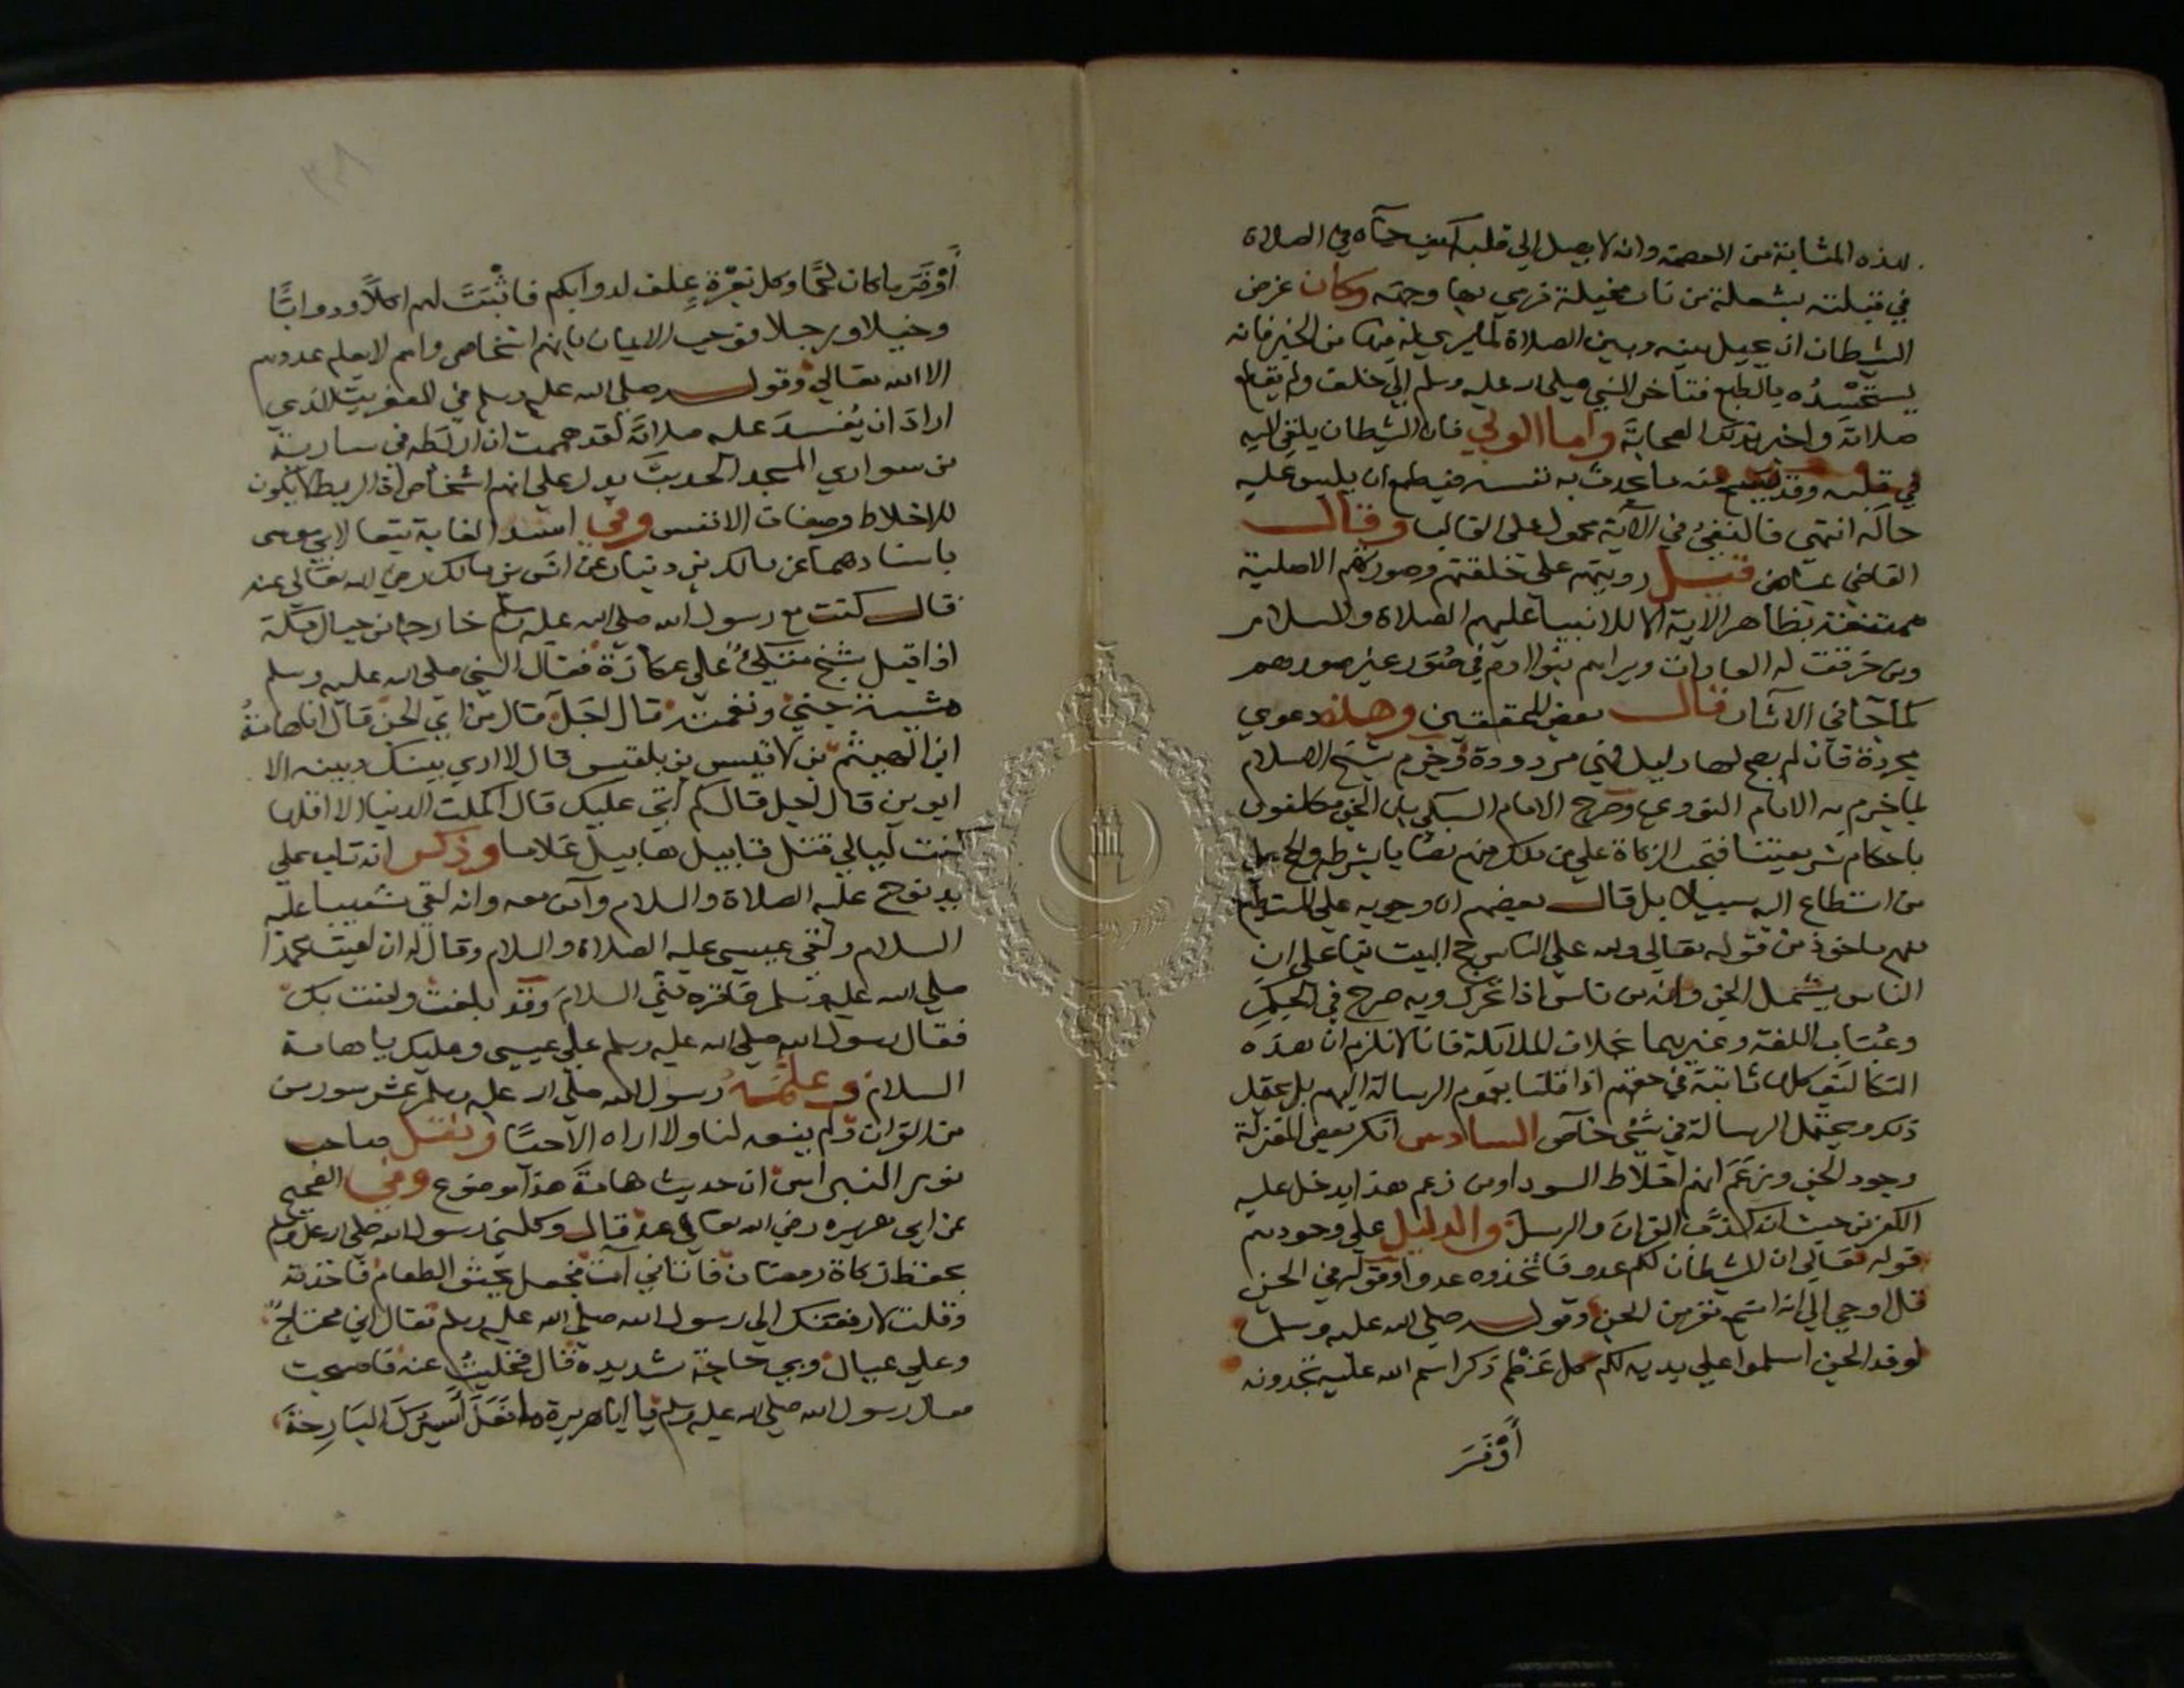 لهذه المثابة من العصمة وانه لا يصل الي قلبه كيف جاه في الصلاة
في قبلته بشعلة من نار مخيلة فرمي بها وجهه وكان غرض
الشيطان ان يحيل بينه وبين الصلاة لما يري له فيها من الخير فانه
يستحسده بالطبع فتاخر النبي صلى الله عليه وسلم الي خلف ولم يقطع
صلاته واخبر بذلك الصحابة واما الولي فان الشيطان يلقي اليه
في قلبه وقد يسمع منه ما يحدث به نفسه فيطمع ان يلبس عليه
حاله انتهي فالنفي في الآية محمول علي الغالب وقال
القاضي عياض قيل رويتهم علي خلقتهم وصورتهم الاصلية
ممتنعة بظاهر الاية الا للانبيا عليهم الصلاة والسلام
ومن خرقت له العادات ويراهم بنوا ادم في صور غير صورهم
كما جا في الآثار قال بعض المحققين وهذه دعوي
مجردة فان لم يصح لها دليل فهي مردودة وجزم شيخ الاسلام
بما جزم به الامام النووي وصرح الامام السبكي بان الجن مكلفون
باحكام شريعتنا فتجب الزكاة علي من ملك منهم نصابا بشرطه والحج علي
من استطاع اليه سبيلا بل قال بعضهم ان وجوبه علي المستطيع
منهم ماخوذ من قوله تعالي ولله علي الناس حج البيت بنا علي ان
الناس يشمل الجن وانه من ناس اذا تحرك وبه صرح في المحكم
وعباب اللغة وغيرهما بخلاف الملايكة فانا لا نلزم ان هذه
التكاليف كلها ثابتة في حقهم اذا قلنا بعموم الرسالة اليهم بل يحتمل
ذلك ويحتمل الرسالة في شيئ خاص السادس انكر بعض المعتزلة
وجود الجن وزعم انهم اخلاط السودا ومن زعم هذا يدخل عليه
الكفر من حيث انه كذب القران والرسل والدليل علي وجودهم
قوله تعالي ان الشيطان لكم عدو فاتخذوه عدوا وقوله في الجن
قل اوحي الي انه استمع نفر من الجن وقوله صلي الله عليه وسلم
لوفد الجن اسلموا علي يديه لكم كل عظم ذكر اسم الله عليه تجدونه
أوفر
أوفر ما كان لحما وكل بعرة علف لدوابكم فاثبت لهم اكلا ودوابا
وخيلا ورجلا فوجب الايمان بانهم اشخاص وامم لا يعلم عددهم
الا الله تعالي وقوله صلي الله عليه وسلم في العفريت الذي
اراد ان يفسد عليه صلاته لقد هممت ان اربطه في سارية
من سواري المسجد الحديث يدل علي انهم اشخاص اذ الربط لا يكون
للاخلاط وصفات الانفس وفي اسد الغابة تبعا لابي موسي
باسنادهما عن مالك بن دينار عن انس بن مالك رضي الله تعالي عنه
قال كنت مع رسول الله صلي الله عليه وسلم خارجا من جبال مكة
اذ اقبل شيخ متكئ علي عكازة فقال النبي صلي الله عليه وسلم
مشية جني ونغمته قال اجل قال من اي الجن قال انا هامة
ابن الهيثم بن لاقيس بن بلقيس قال لا اري بينك وبينه الا
ابوين قال اجل قال كم اتي عليك قال اكلت الدنيا الا اقلها
كنت ليالي قتل قابيل هابيل غلاما وذكر انه تاب علي
يد نوح عليه الصلاة والسلام وآمن معه وانه لقي شعيبا عليه
السلام ولقي عيسي عليه الصلاة والسلام وقال له ان لقيت محمدا
صلي الله عليه وسلم فاقره مني السلام وقد بلغت وامنت بك
فقال رسول الله صلي الله عليه وسلم علي عيسي وعليك يا هامة
السلام وعلمه رسول الله صلي الله عليه وسلم عشر سور من
من القران ولم ينعه لنا ولا اراه الا حيا ونقل صاحب
نور النبراس ان حديث هامة هذا موضوع وفي الصحيح
عن ابي هريره رضي الله تعالي عنه قال وكلني رسول الله صلي الله عليه وسلم
بحفظ زكاة رمضان فاتاني آت فجعل يحثوا الطعام فاخذته
وقلت لارفعنك الي رسول الله صلي الله عليه وسلم فقال اني محتاج
وعلي عيال وبي حاجة شديده قال فخليت عنه فاصبحت
فقال رسول الله صلي الله عليه وسلم يا ابا هريرة ما فعل أسيرك البارحة